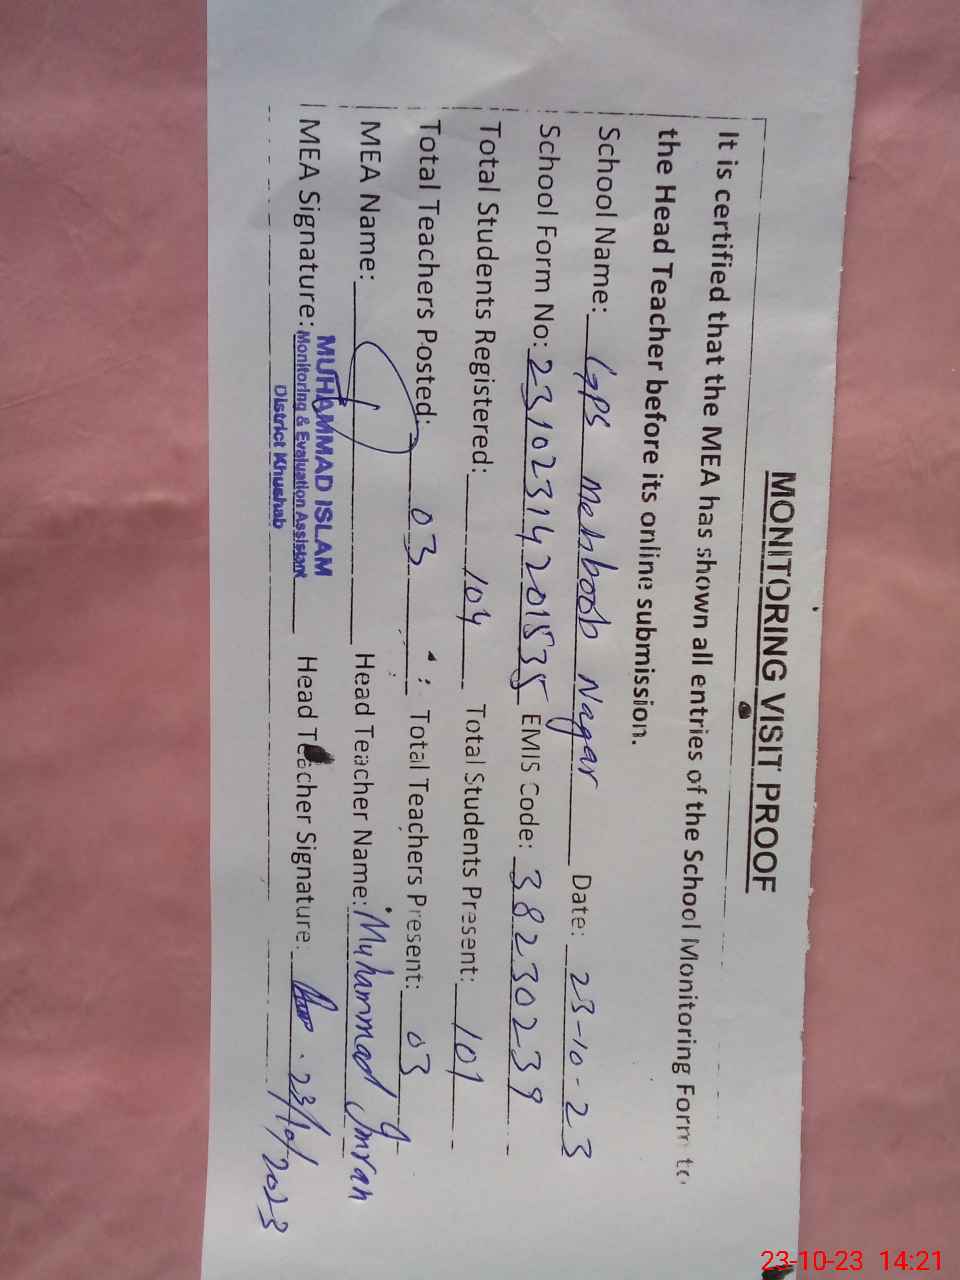 MONITORING VISIT PROOF
It is certified that the MEA has shown all entries of the School Monitoring Form to
the Head Teacher before its online submission.
School Name: GPS Mehboob Nagar Date: 23-10-23
School Form No: 23102314201535 EMIS Code: 38230239
Total Students Registered: 104 Total Students Present: 101
Total Teachers Posted: 03 Total Teachers Present: 03
MEA Name: Head Teacher Name: Muhammad Imran
MEA Signature: MUHAMMAD ISLAM Head Teacher Signature: 23/10/2023
Monitoring & Evaluation Assistant
District Khushab
23-10-23 14:21